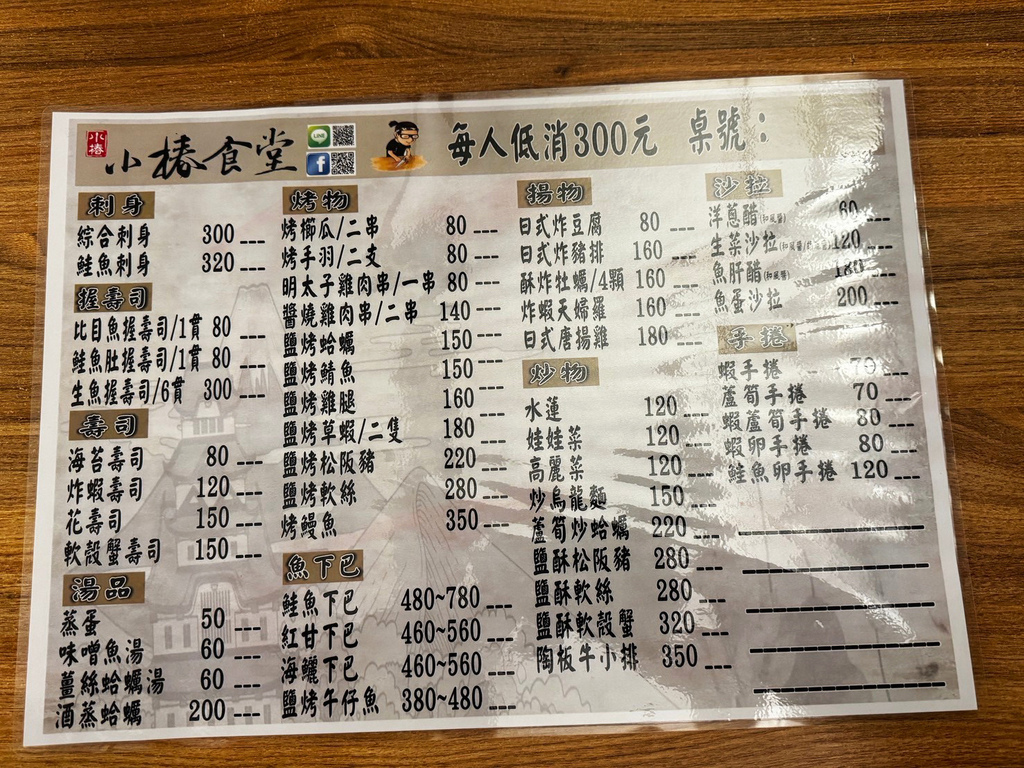 小椿
小椿食堂
LINE
每人低消300元 桌號：
刺身
綜合刺身 300
鮭魚刺身 320
握壽司
比目魚握壽司/1貫 80
鮭魚肚握壽司/1貫 80
生魚握壽司/6貫 300
壽司
海苔壽司 80
炸蝦壽司 120
花壽司 150
軟殼蟹壽司 150
湯品
蒸蛋 50
味噌魚湯 60
薑絲蛤蠣湯 60
酒蒸蛤蠣 200
烤物
烤櫛瓜/二串 80
烤手羽/二支 80
明太子雞肉串/一串 80
醬燒雞肉串/二串 140
鹽烤蛤蠣 150
鹽烤鯖魚 150
鹽烤雞腿 160
鹽烤草蝦/二隻 180
鹽烤松阪豬 220
鹽烤軟絲 280
烤鰻魚 350
魚下巴
鮭魚下巴 480~780
紅甘下巴 460~560
海鱺下巴 460~560
鹽烤午仔魚 380~480
揚物
日式炸豆腐 80
日式炸豬排 160
酥炸牡蠣/4顆 160
炸蝦天婦羅 160
日式唐揚雞 180
炒物
水蓮 120
娃娃菜 120
高麗菜 120
炒烏龍麵 150
蘆筍炒蛤蠣 220
鹽酥松阪豬 280
鹽酥軟絲 280
鹽酥軟殼蟹 320
陶板牛小排 350
沙拉
洋蔥醋(和風醬) 60
生菜沙拉(和風醬/ 120
魚肝醋(和風醬) 180
魚蛋沙拉 200
手捲
蝦手捲 70
蘆筍手捲 70
蝦蘆筍手捲 80
蝦卵手捲 80
鮭魚卵手捲 120